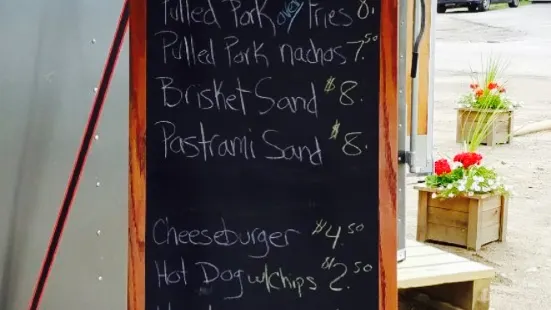 Pulled Pork over Fries 8.
Pulled Pork nachos 7.50
Brisket Sand $8.
Pastrami Sand $8.
Cheeseburger $4.50
Hot Dog w/chips $2.50